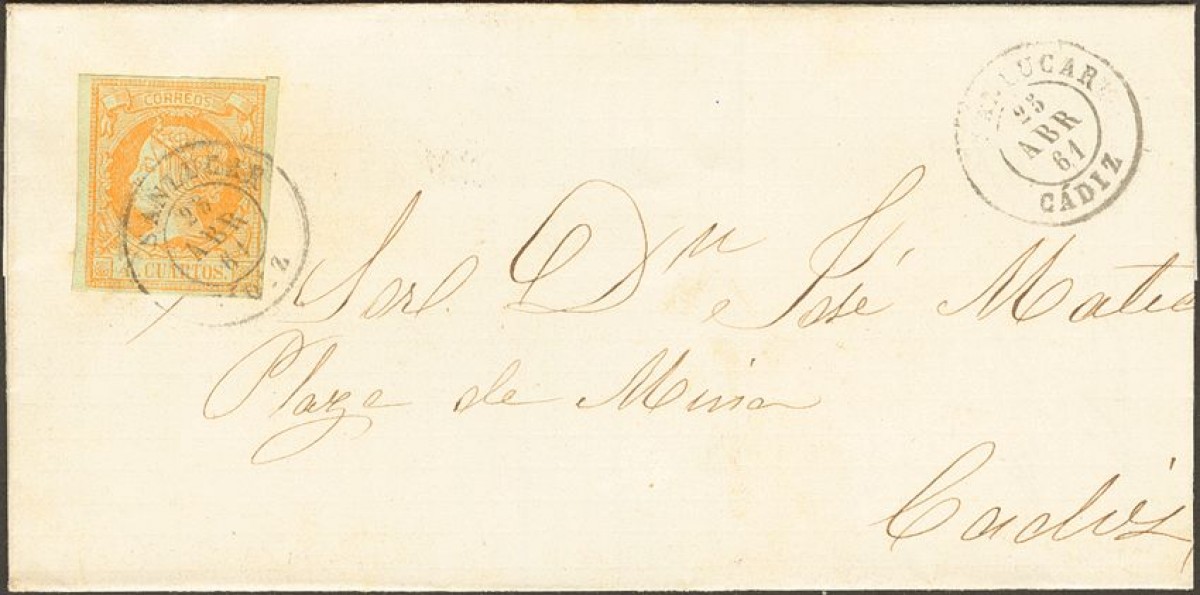 CORREOS
4 CUARTOS.
SANLUCAR
25
ABR
61
SANLUCAR
25
ABR
61
CÁDIZ
Sor. Dn José Mateo
Plaza de Mina
Cadiz